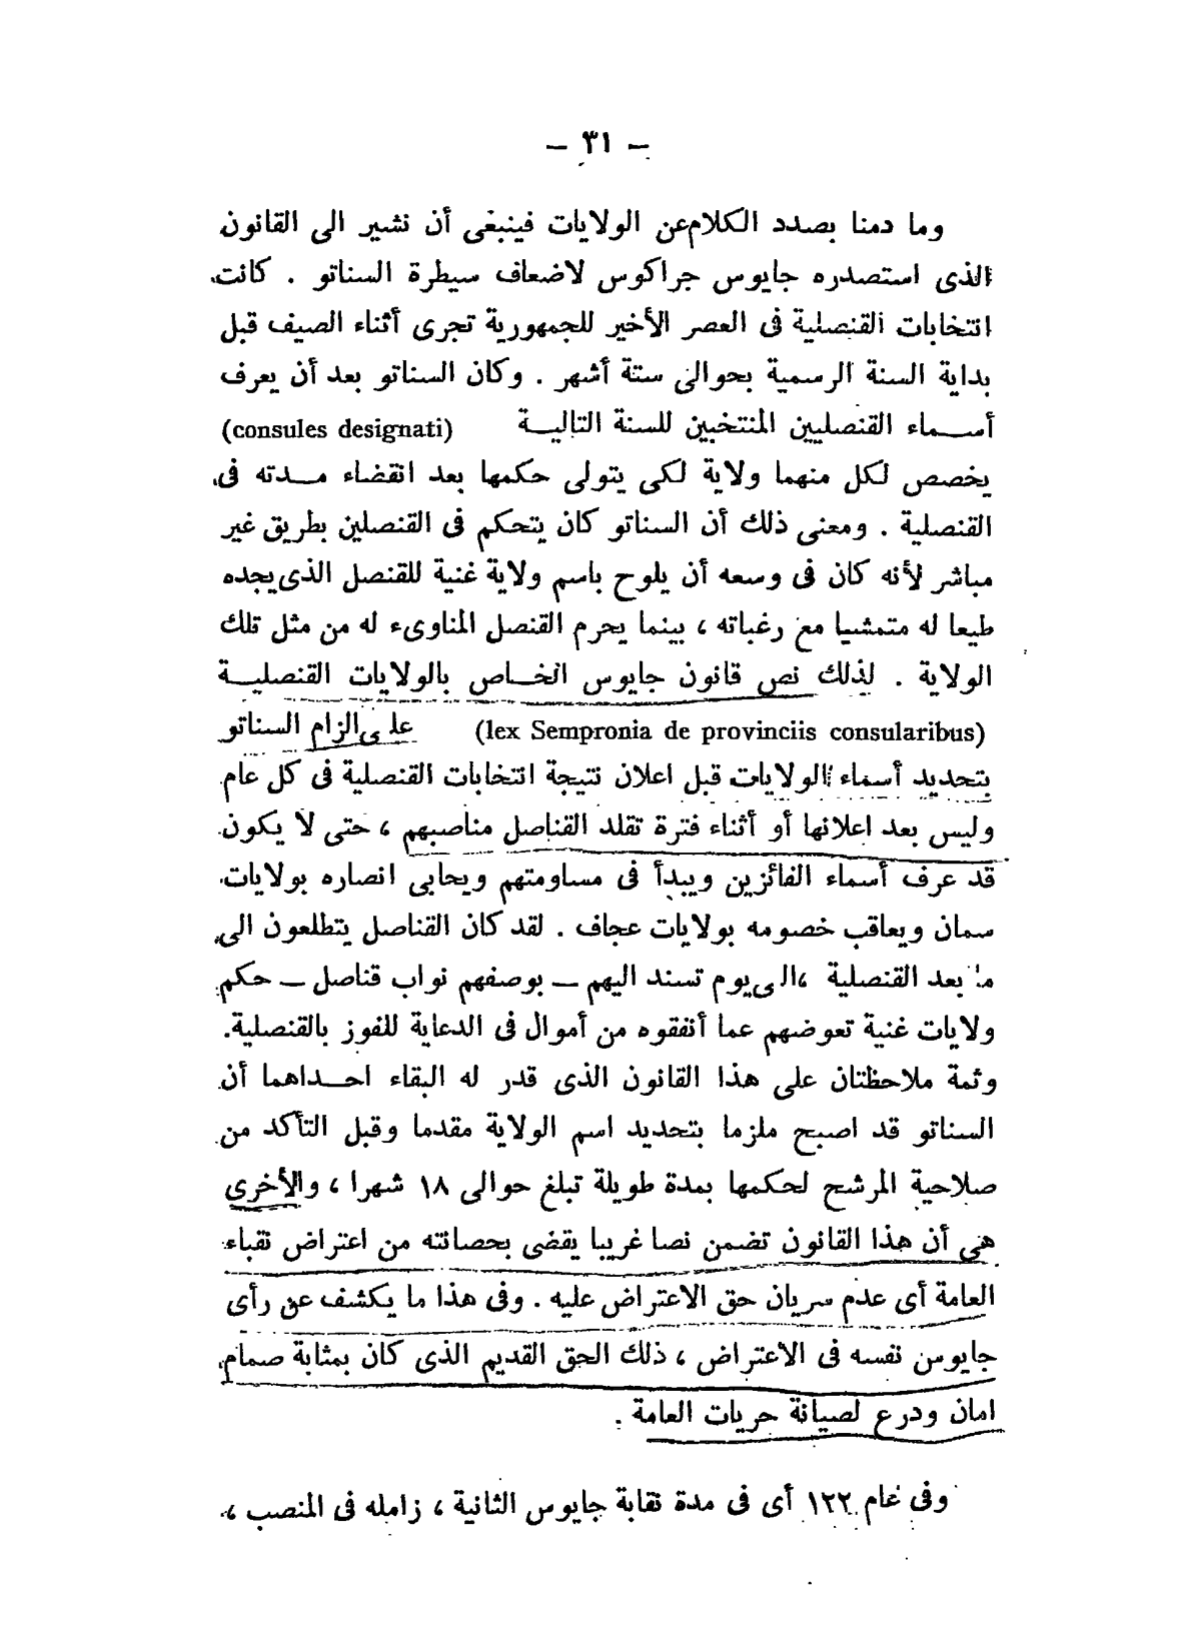 — ٣١ —
وما دمنا بصدد الكلام عن الولايات فينبغى أن نشير الى القانون
الذى استصدره جايوس جراكوس لاضعاف سيطرة السناتو . كانت
انتخابات القنصلية فى العصر الأخير للجمهورية تجرى أثناء الصيف قبل
بداية السنة الرسمية بحوالى ستة أشهر . وكان السناتو بعد أن يعرف
أسماء القنصليين المنتخبين للسنة التالية (consules designati)
يخصص لكل منهما ولاية لكى يتولى حكمها بعد انقضاء مدته فى
القنصلية . ومعنى ذلك أن السناتو كان يتحكم فى القنصلين بطريق غير
مباشر لأنه كان فى وسعه أن يلوح باسم ولاية غنية للقنصل الذى يجده
طيعا له متمشيا مع رغباته ، بينما يحرم القنصل المناوىء له من مثل تلك
الولاية . لذلك نص قانون جايوس الخاص بالولايات القنصلية
(lex Sempronia de provinciis consularibus) على الزام السناتو
بتحديد أسماء الولايات قبل اعلان نتيجة انتخابات القنصلية فى كل عام
وليس بعد اعلانها أو أثناء فترة تقلد القناصل مناصبهم ، حتى لا يكون
قد عرف أسماء الفائزين ويبدأ فى مساومتهم ويحابى انصاره بولايات
سمان ويعاقب خصومه بولايات عجاف . لقد كان القناصل يتطلعون الى
ما بعد القنصلية ، الى يوم تسند اليهم — بوصفهم نواب قناصل — حكم
ولايات غنية تعوضهم عما أنفقوه من أموال فى الدعاية للفوز بالقنصلية.
وثمة ملاحظتان على هذا القانون الذى قدر له البقاء احداهما أن
السناتو قد اصبح ملزما بتحديد اسم الولاية مقدما وقبل التأكد من
صلاحية المرشح لحكمها بمدة طويلة تبلغ حوالى ١٨ شهرا ، والأخرى
هى أن هذا القانون تضمن نصا غريبا يقضى بحصانته من اعتراض نقباء
العامة أى عدم سريان حق الاعتراض عليه . وفى هذا ما يكشف عن رأى
جايوس نفسه فى الاعتراض ، ذلك الحق القديم الذى كان بمثابة صمام
امان ودرع لصيانة حريات العامة .
وفى عام ١٢٢ أى فى مدة نقابة جايوس الثانية ، زامله فى المنصب ،